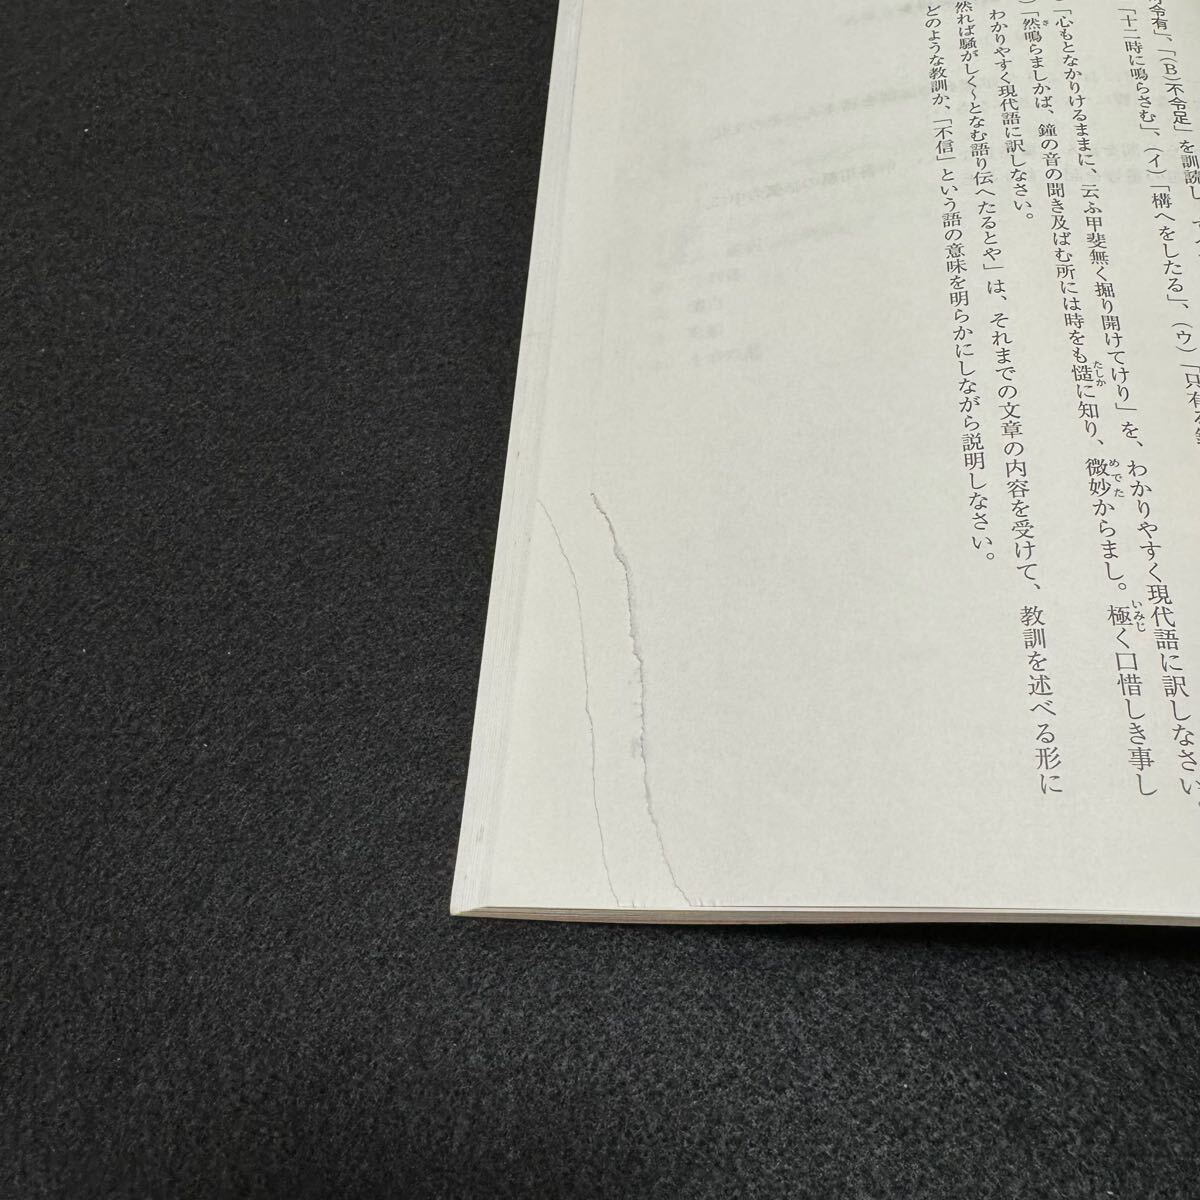 不令有」、「(B)不令足」を訓読し
「十二時に鳴らさむ」、(イ)「構へをしたる」、(ウ)「只有る
「心もとなかりけるままに、云ふ甲斐無く掘り開けてけり」を、わかりやすく現代語に訳しなさい。
「然鳴らましかば、鐘の音の聞き及ばむ所には時をも慥に知り、微妙からまし。極く口惜しき事し
わかりやすく現代語に訳しなさい。
然れば騒がしく〜となむ語り伝へたるとや」は、それまでの文章の内容を受けて、教訓を述べる形に
どのような教訓か、「不信」という語の意味を明らかにしながら説明しなさい。